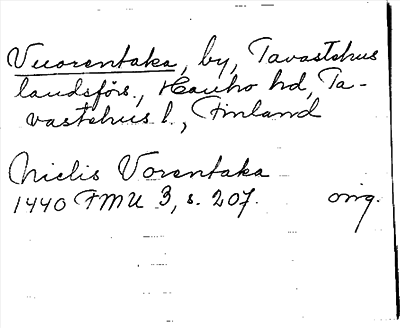 Vuorentaka, by, Tavastehus
landsförs., Hauho hd, Ta-
vastehus l., Finland
Nielis Vorentaka
1440 FMU 3, s. 207. orig.